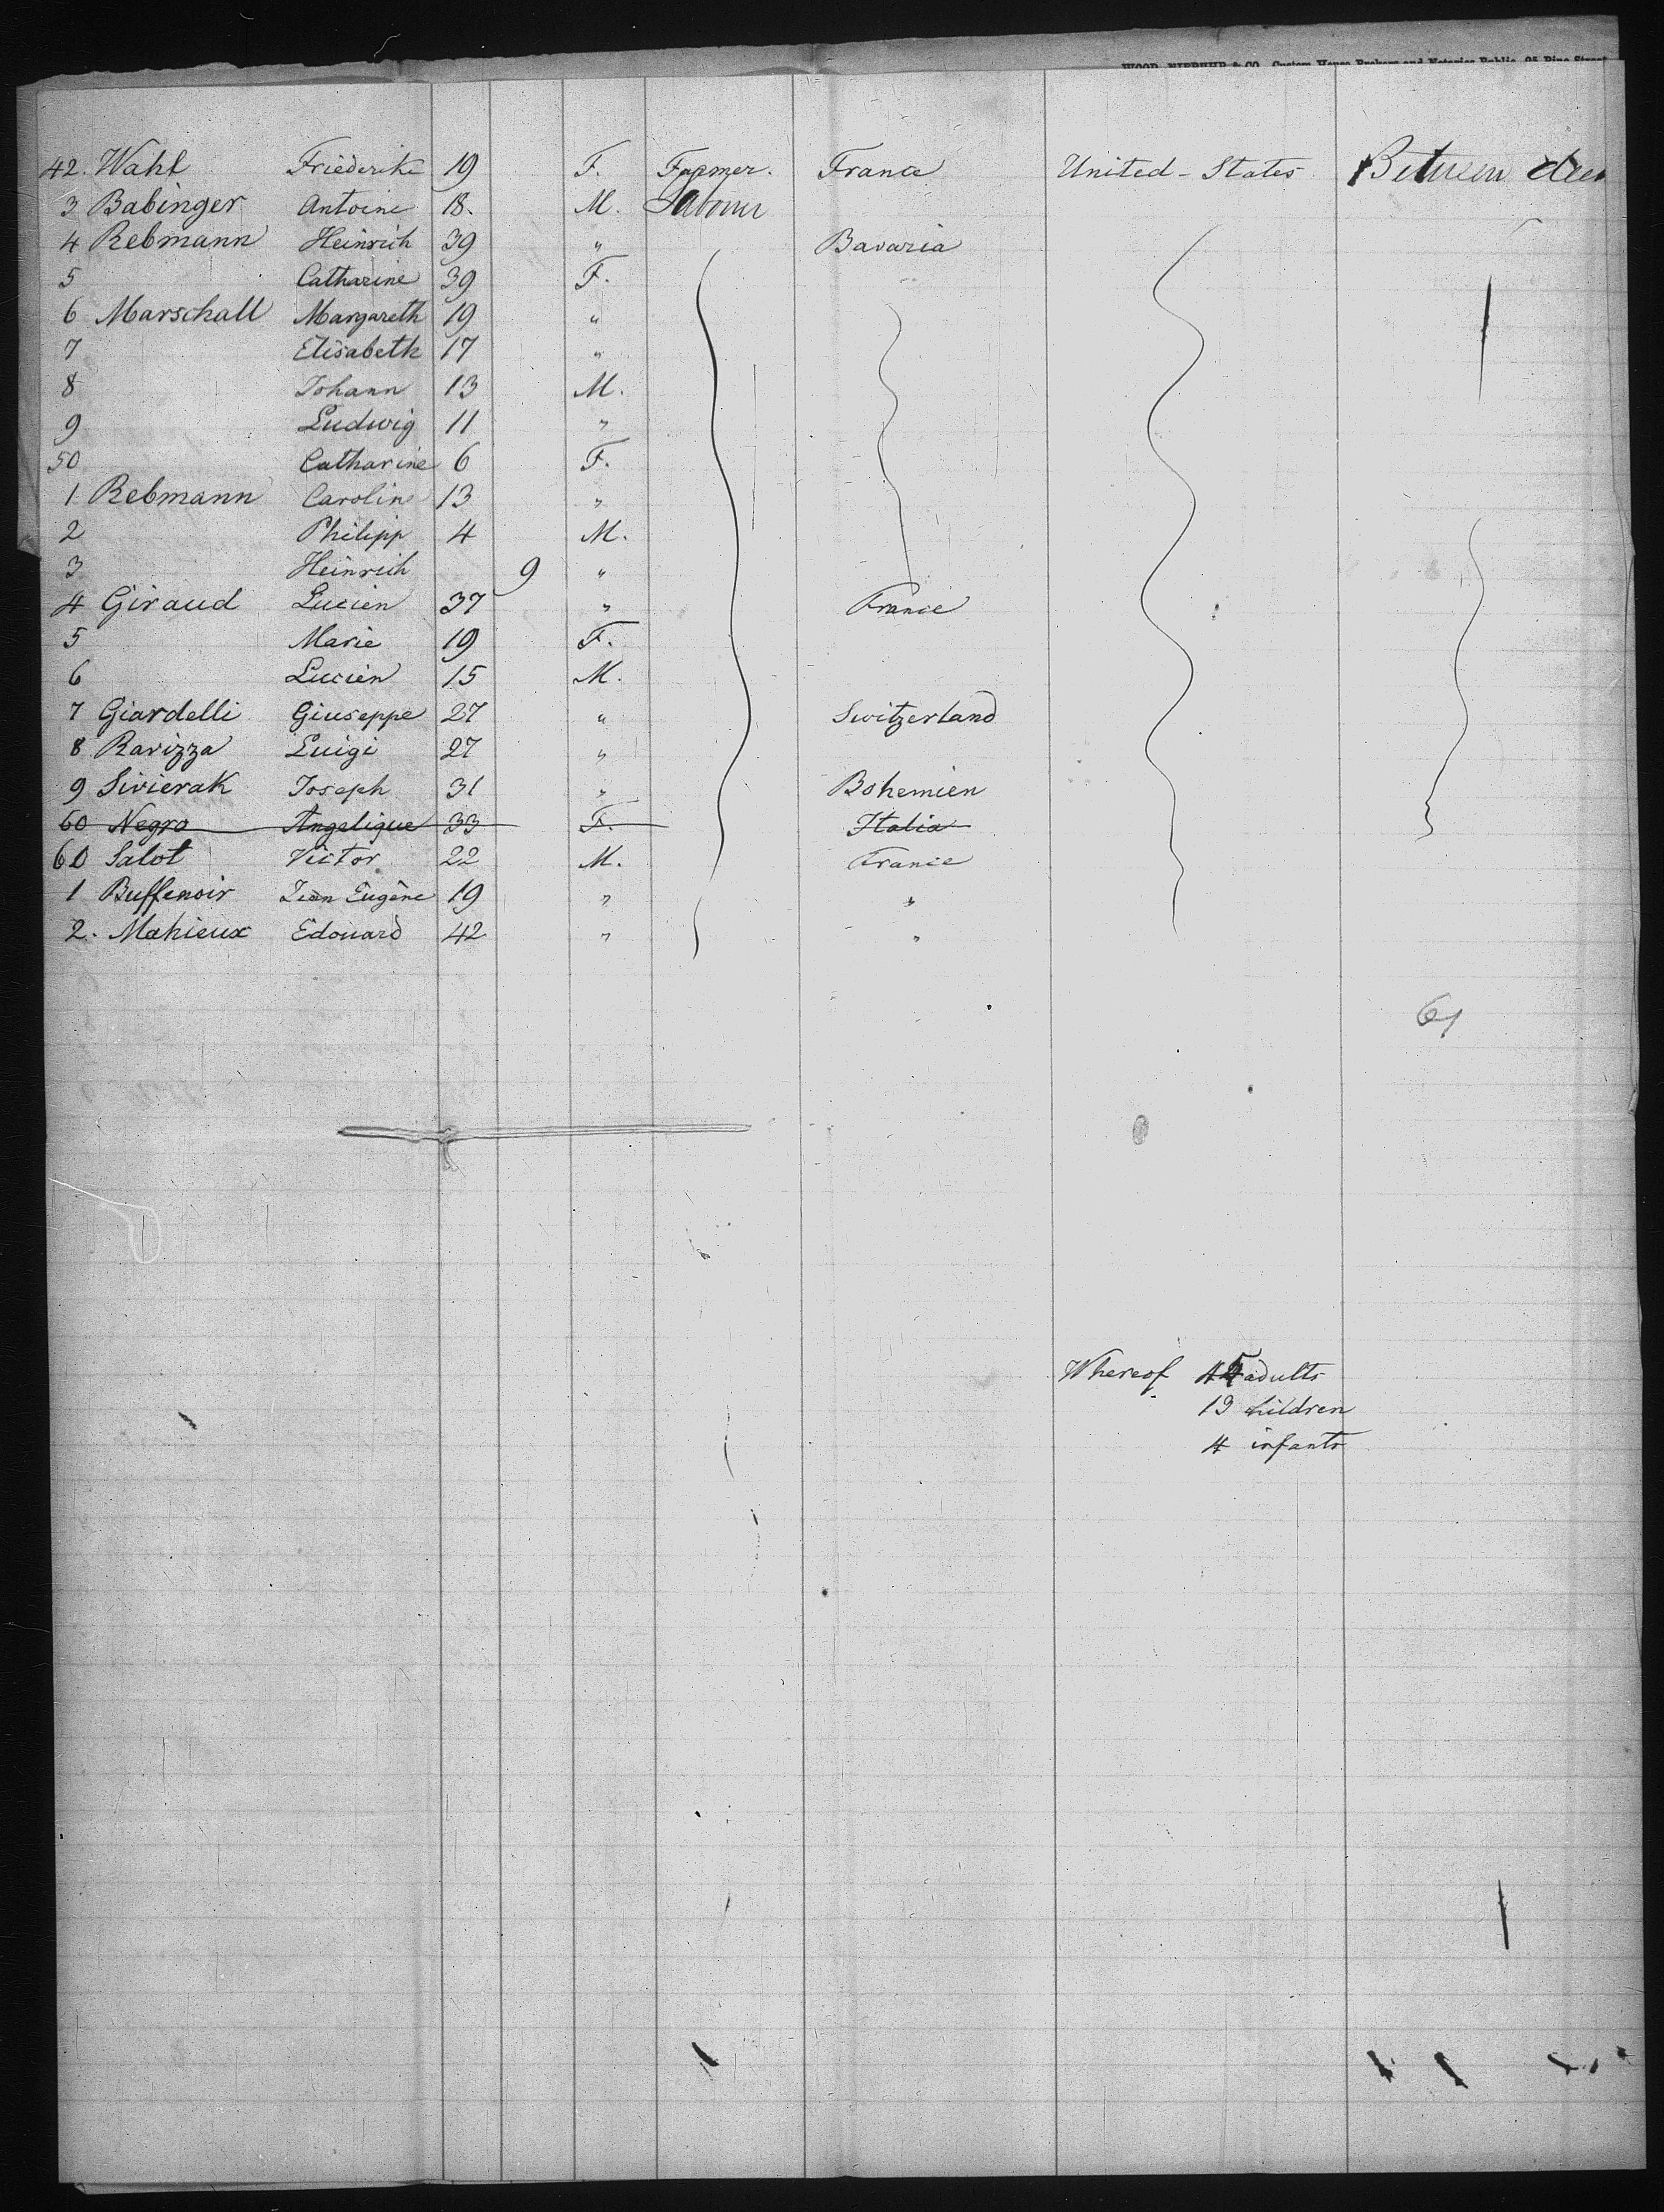 42. Wahl Friederike 19 F. Farmer. France United-States Between deck
3 Babinger Antoine 18. M. Labour
4 Rebmann Heinrich 39 " Bavaria
5 Catharine 39 F.
6 Marschall Margareth 19 "
7 Elisabeth 17 "
8 Johann 13 M.
9 Ludwig 11 "
50 Catharine 6 F.
1 Rebmann Caroline 13 "
2 Philipp 4 M.
3 Heinrich 9 "
4 Giraud Lucien 37 " France
5 Marie 19 F.
6 Lucien 15 M.
7 Giardelli Giuseppe 27 " Switzerland
8 Ravizza Luigi 27 "
9 Sivierak Joseph 31 " Bohemien
60 Negro Angelique 33 F. Italia
60 Salot Victor 22 M. France
1 Buffenoir Jean Eugène 19 " "
2. Mahieux Edouard 42 " "
61
Whereof adults
13 children
4 infants